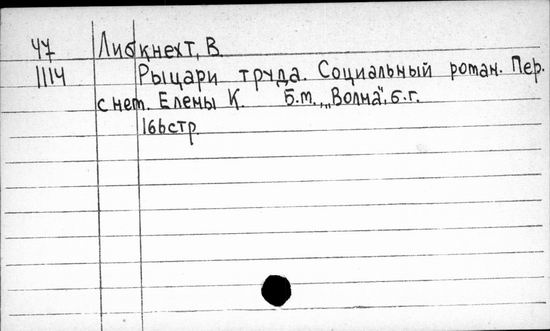 47 Либкнехт, В.
1114 Рыцари труда. Социальный роман. Пер.
с нем. Елены К. Б.м., „Волна", б.г.
166стр.